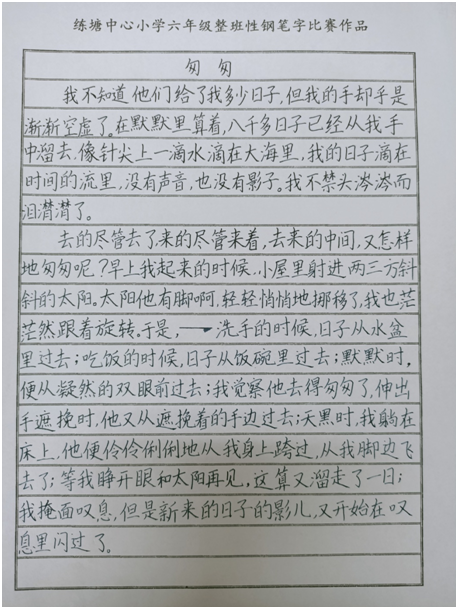 练塘中心小学六年级整班性钢笔字比赛作品
匆匆
我不知道他们给了我多少日子,但我的手却乎是
渐渐空虚了。在默默里算着,八千多日子已经从我手
中溜去,像针尖上一滴水滴在大海里,我的日子滴在
时间的流里,没有声音,也没有影子。我不禁头涔涔而
泪潸潸了。
去的尽管去了,来的尽管来着,去来的中间,又怎样
地匆匆呢?早上我起来的时候,小屋里射进两三方斜
斜的太阳。太阳他有脚啊,轻轻悄悄地挪移了,我也茫
茫然跟着旋转。于是,——洗手的时候,日子从水盆
里过去;吃饭的时候,日子从饭碗里过去;默默时,
便从凝然的双眼前过去;我觉察他去得匆匆了,伸出
手遮挽时,他又从遮挽着的手边过去;天黑时,我躺在
床上,他便伶伶俐俐地从我身上跨过,从我脚边飞
去了;等我睁开眼和太阳再见,这算又溜走了一日;
我掩面叹息,但是新来的日子的影儿,又开始在叹
息里闪过了。